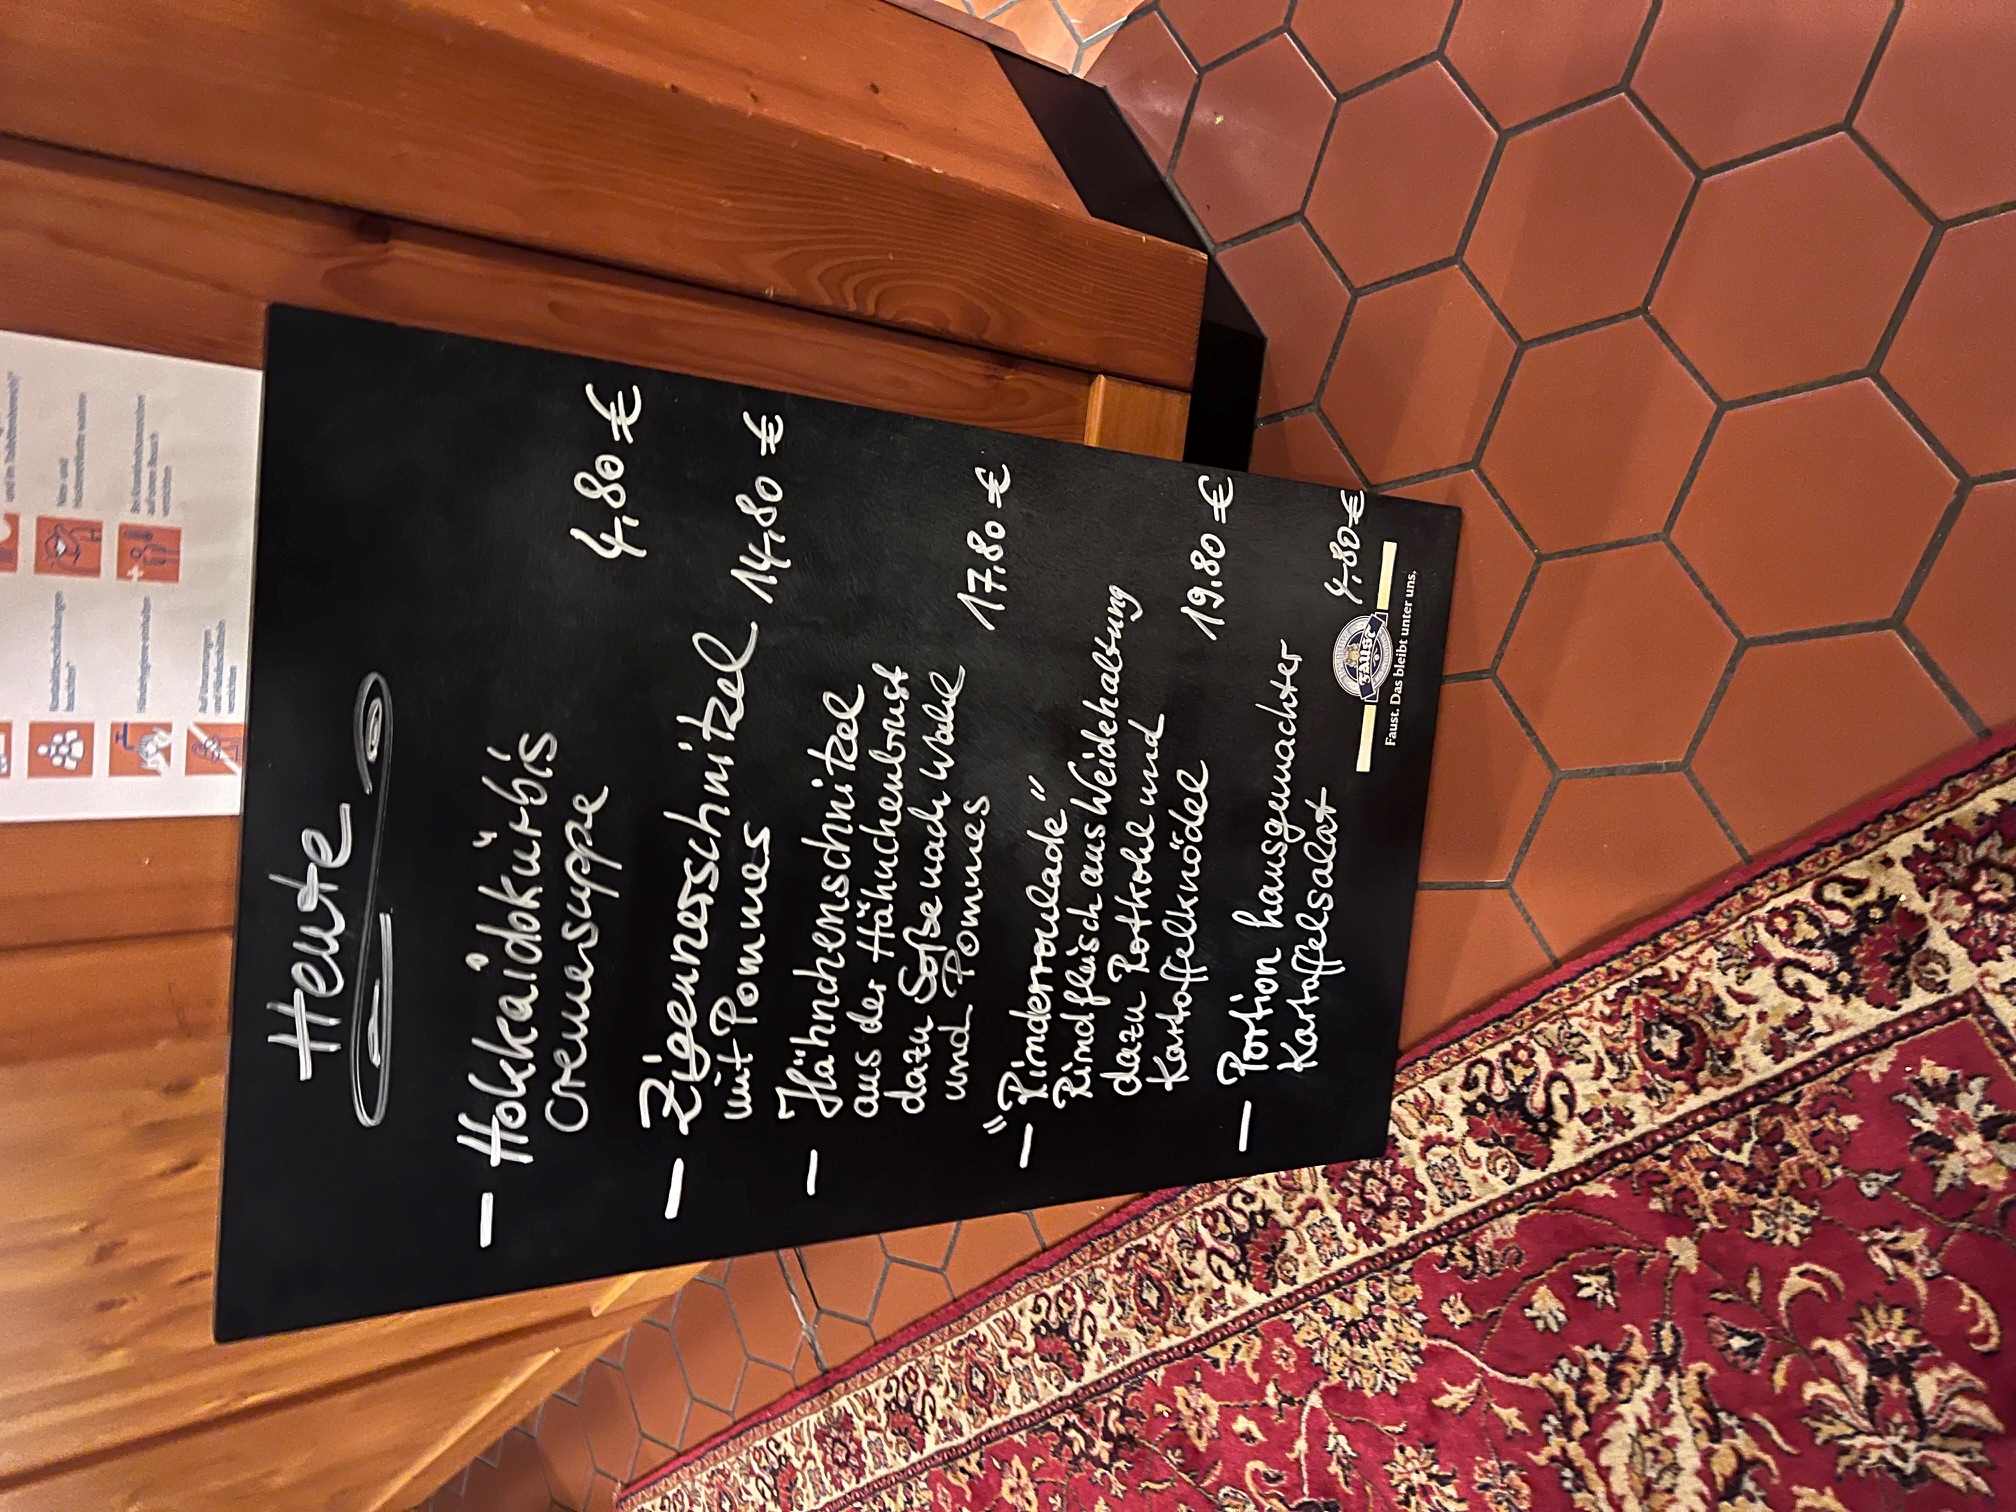 Heute
– Hokkaidokürbis
cremesuppe 4,80 €
– Zigeunerschnitzel
mit Pommes 14,80 €
– Hähnchenschnitzel
aus der Hähnchenbrust
dazu Soße nach Wahl
und Pommes 17,80 €
– "Rinderroulade"
Rindfleisch aus Weidehaltung
dazu Rotkohl und
Kartoffelknödel 19,80 €
– Portion hausgemachter
Kartoffelsalat 4,80 €
FAUST
Faust. Das bleibt unter uns.